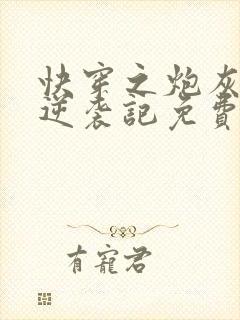 快穿之炮灰
逆袭記免費
有寵君